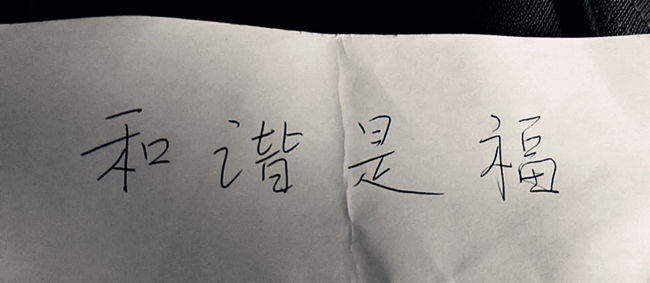 和谐是福